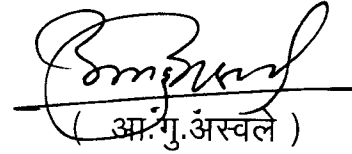 ( आ.गु.अस्वले )